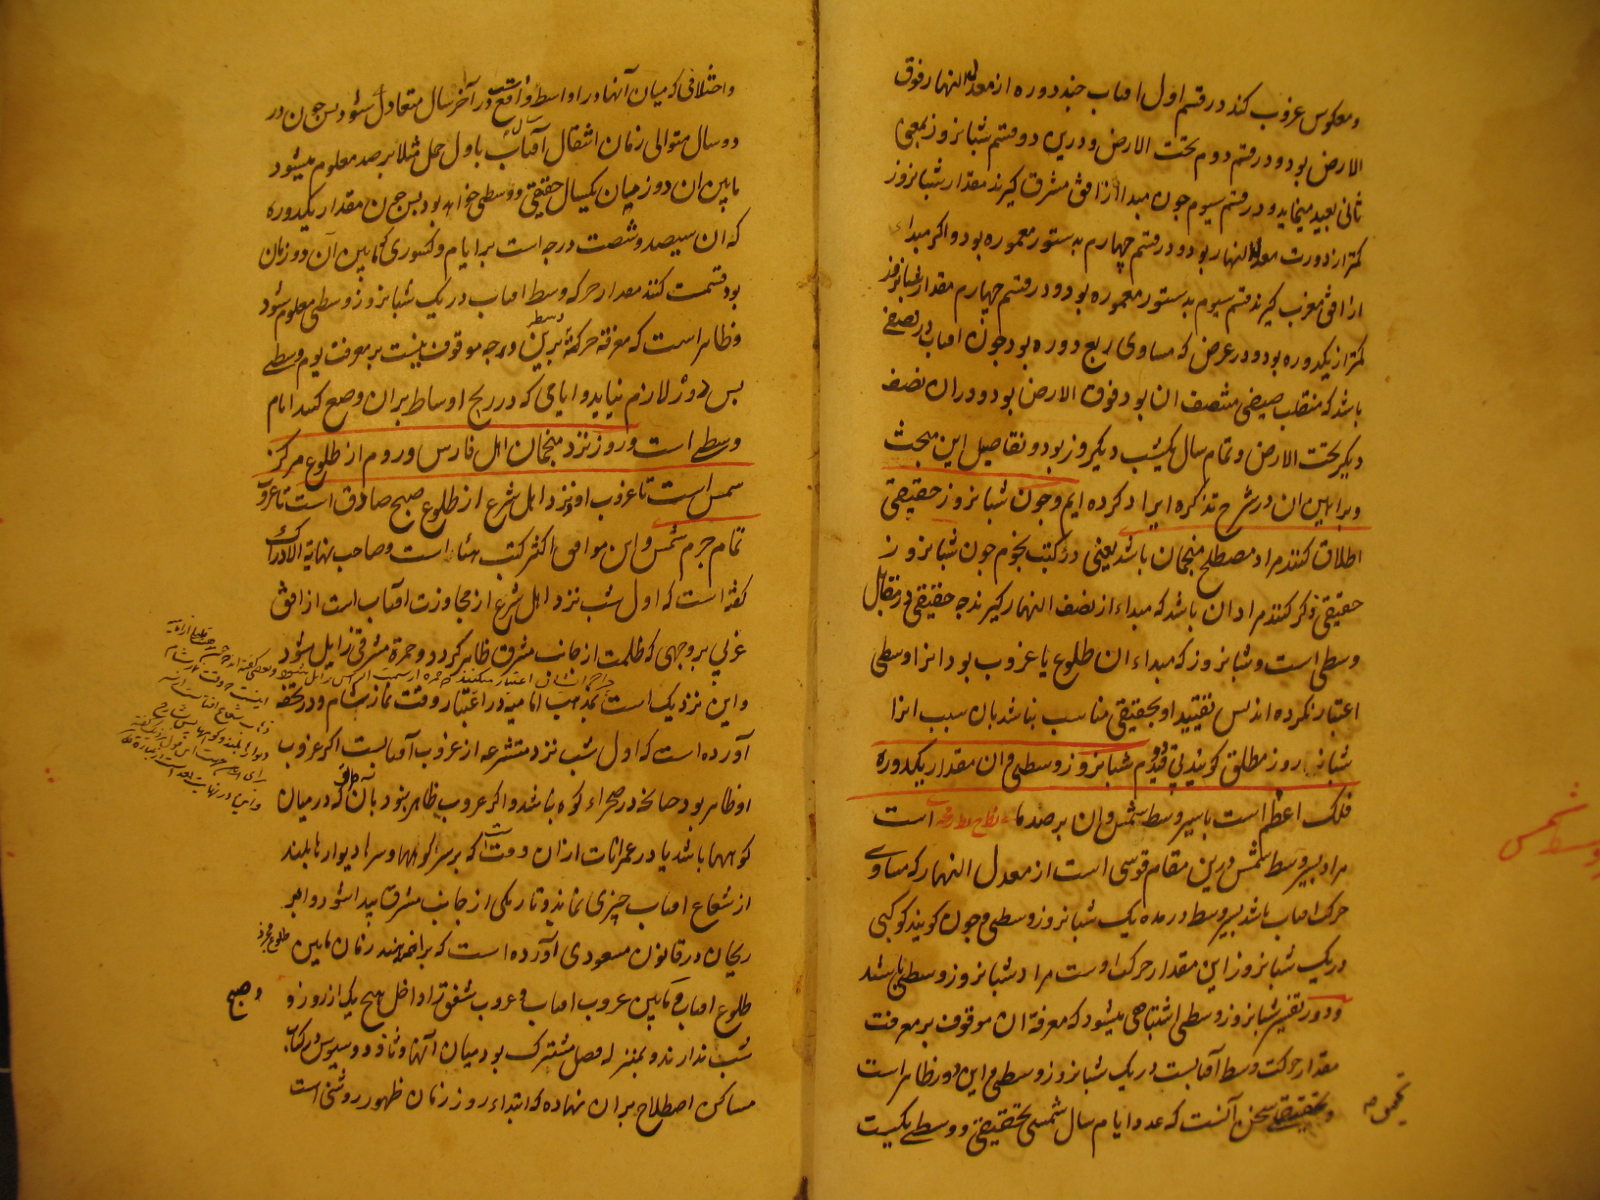 ومعکوس غروب کند در قسم اول افتاب چند دوره از معدل النهار فوق
الارض بود و در قسم دوم تحت الارض و درین دو قسم شبانروز بمعنی
ثانی بعید مینماید و در قسم سیوم چون مبدا از افق مشرق کیرند مقدار شبانروز
کمتر از دورت معدل النهار بود و در قسم چهارم بدستور معموره بود و اکر مبداء
از افق مغرب کیرند قسم سیوم بدستور معموره بود و در قسم چهارم مقدار شبانروز
کمتر از یکدوره بود و در عرض که مساوی ربع دوره بود چون افتاب در نصفی
باشد که منقلب صیفی منتصف ان بود فوق الارض بود و در ان نصف
دیکر تحت الارض و تمام سال یکشب و یکروز بود و تفاصیل این مبحث
و براهین ان در شرح تذکره ایراد کرده ایم وچون شبانروز حقیقی
اطلاق کنند مراد مصطلح منجمان باشد یعنی در کتب نجوم چون شبانروز
حقیقی ذکر کنند مراد ان باشد که مبداء از نصف النهار کیرند چه حقیقی در مقابل
وسطی است و شبانروز که مبداء ان طلوع یا غروب بود انرا وسطی
اعتبار نکرده اند پس تقیید او بحقیقی مناسب نباشد بان سبب انرا
شبانه روز مطلق کویند بی قید دوم شبانروز وسطی و ان مقدار یکدوره
فلک اعظم است با سیر وسط شمس و ان برصد ما است
مراد بسیر وسط شمس درین مقام قوسی است از معدل النهار که مساوی
حرکت افتاب باشد بسیر وسط در مده یک شبانروز وسطی و چون کویند کوکبی
در یک شبانروز این مقدار حرکت اوست مراد شبانروز وسطی باشد
و دور تفسیر شبانروز وسطی اشتباهی میشود که معرفة ان موقوف بر معرفت
مقدار حرکت وسط آفتابست در یک شبانروز وسطی و این دور ظاهر است
و تحقیق سخن آنست که عدد ایام سال شمسی حقیقی و وسطی یکیست
واختلافی که میان آنها در اواسط واقع در آخر سال متعادل شود پس چون در
دو سال متوالی زمان انتقال آفتاب باول حمل مثلا برصد معلوم میشود
مابین ان دو زمان یکسال حقیقی و وسطی خواهد بود پس چون مقدار یکدوره
که ان سیصد و شصت درجه است بر ایام و کسوری که مابین آن دو زمان
بود قسمت کنند مقدار حرکه وسط افتاب در یک شبانروز وسطی معلوم شود
و ظاهر است که معرفة حرکة وسط برین وجه موقوف نیست بر معرفت یوم وسطی
پس دور لازم نیاید و ایامی که در زیج اوساط بران وضع کنند ایام
وسطی است و روز نزد منجمان اهل فارس و روم از طلوع مرکز
شمس است تا غروب او و نزد اهل شرع از طلوع صبح صادق است تا غروب
تمام جرم شمس و این موافق اکثر کتب هیئت است و صاحب نهایة الادراک
کفته است که اول شب نزد اهل شرع از مجاوزت افتاب است از افق
غربی بر وجهی که ظلمت از جانب مشرق ظاهر کردد و حمرة مشرقی زایل شود
و این نزدیک است بمذهب امامیه در اعتبار وقت نماز شام و در تحفه
آورده است که اول شب نزد متشرعه از غروب آفتابست اکر غروب
او ظاهر بود چنانکه در صحراء کوه نباشد و اکر غروب ظاهر نبود بانکه در میان
کوهها باشد یا در عمرانات از ان وقت که بر سر کوهها و سر دیوارها بلند
از شعاع افتاب چیزی نماند و تاریکی از جانب مشرق پیدا شود و ابو
ریحان در قانون مسعودی آورده است که براهمه هند زمان مابین
طلوع افتاب و مابین غروب افتاب و غروب شفق را داخل هیچ یک از روز و
شب ندارند و بمنزله فصل مشترک بود میان آنها و ثاوذوسیوس در کتاب
مساکن اصطلاح بران نهاده که ابتداء روز زمان ظهور روشنی است
طلوع فجر
و صبح
وسط شمس